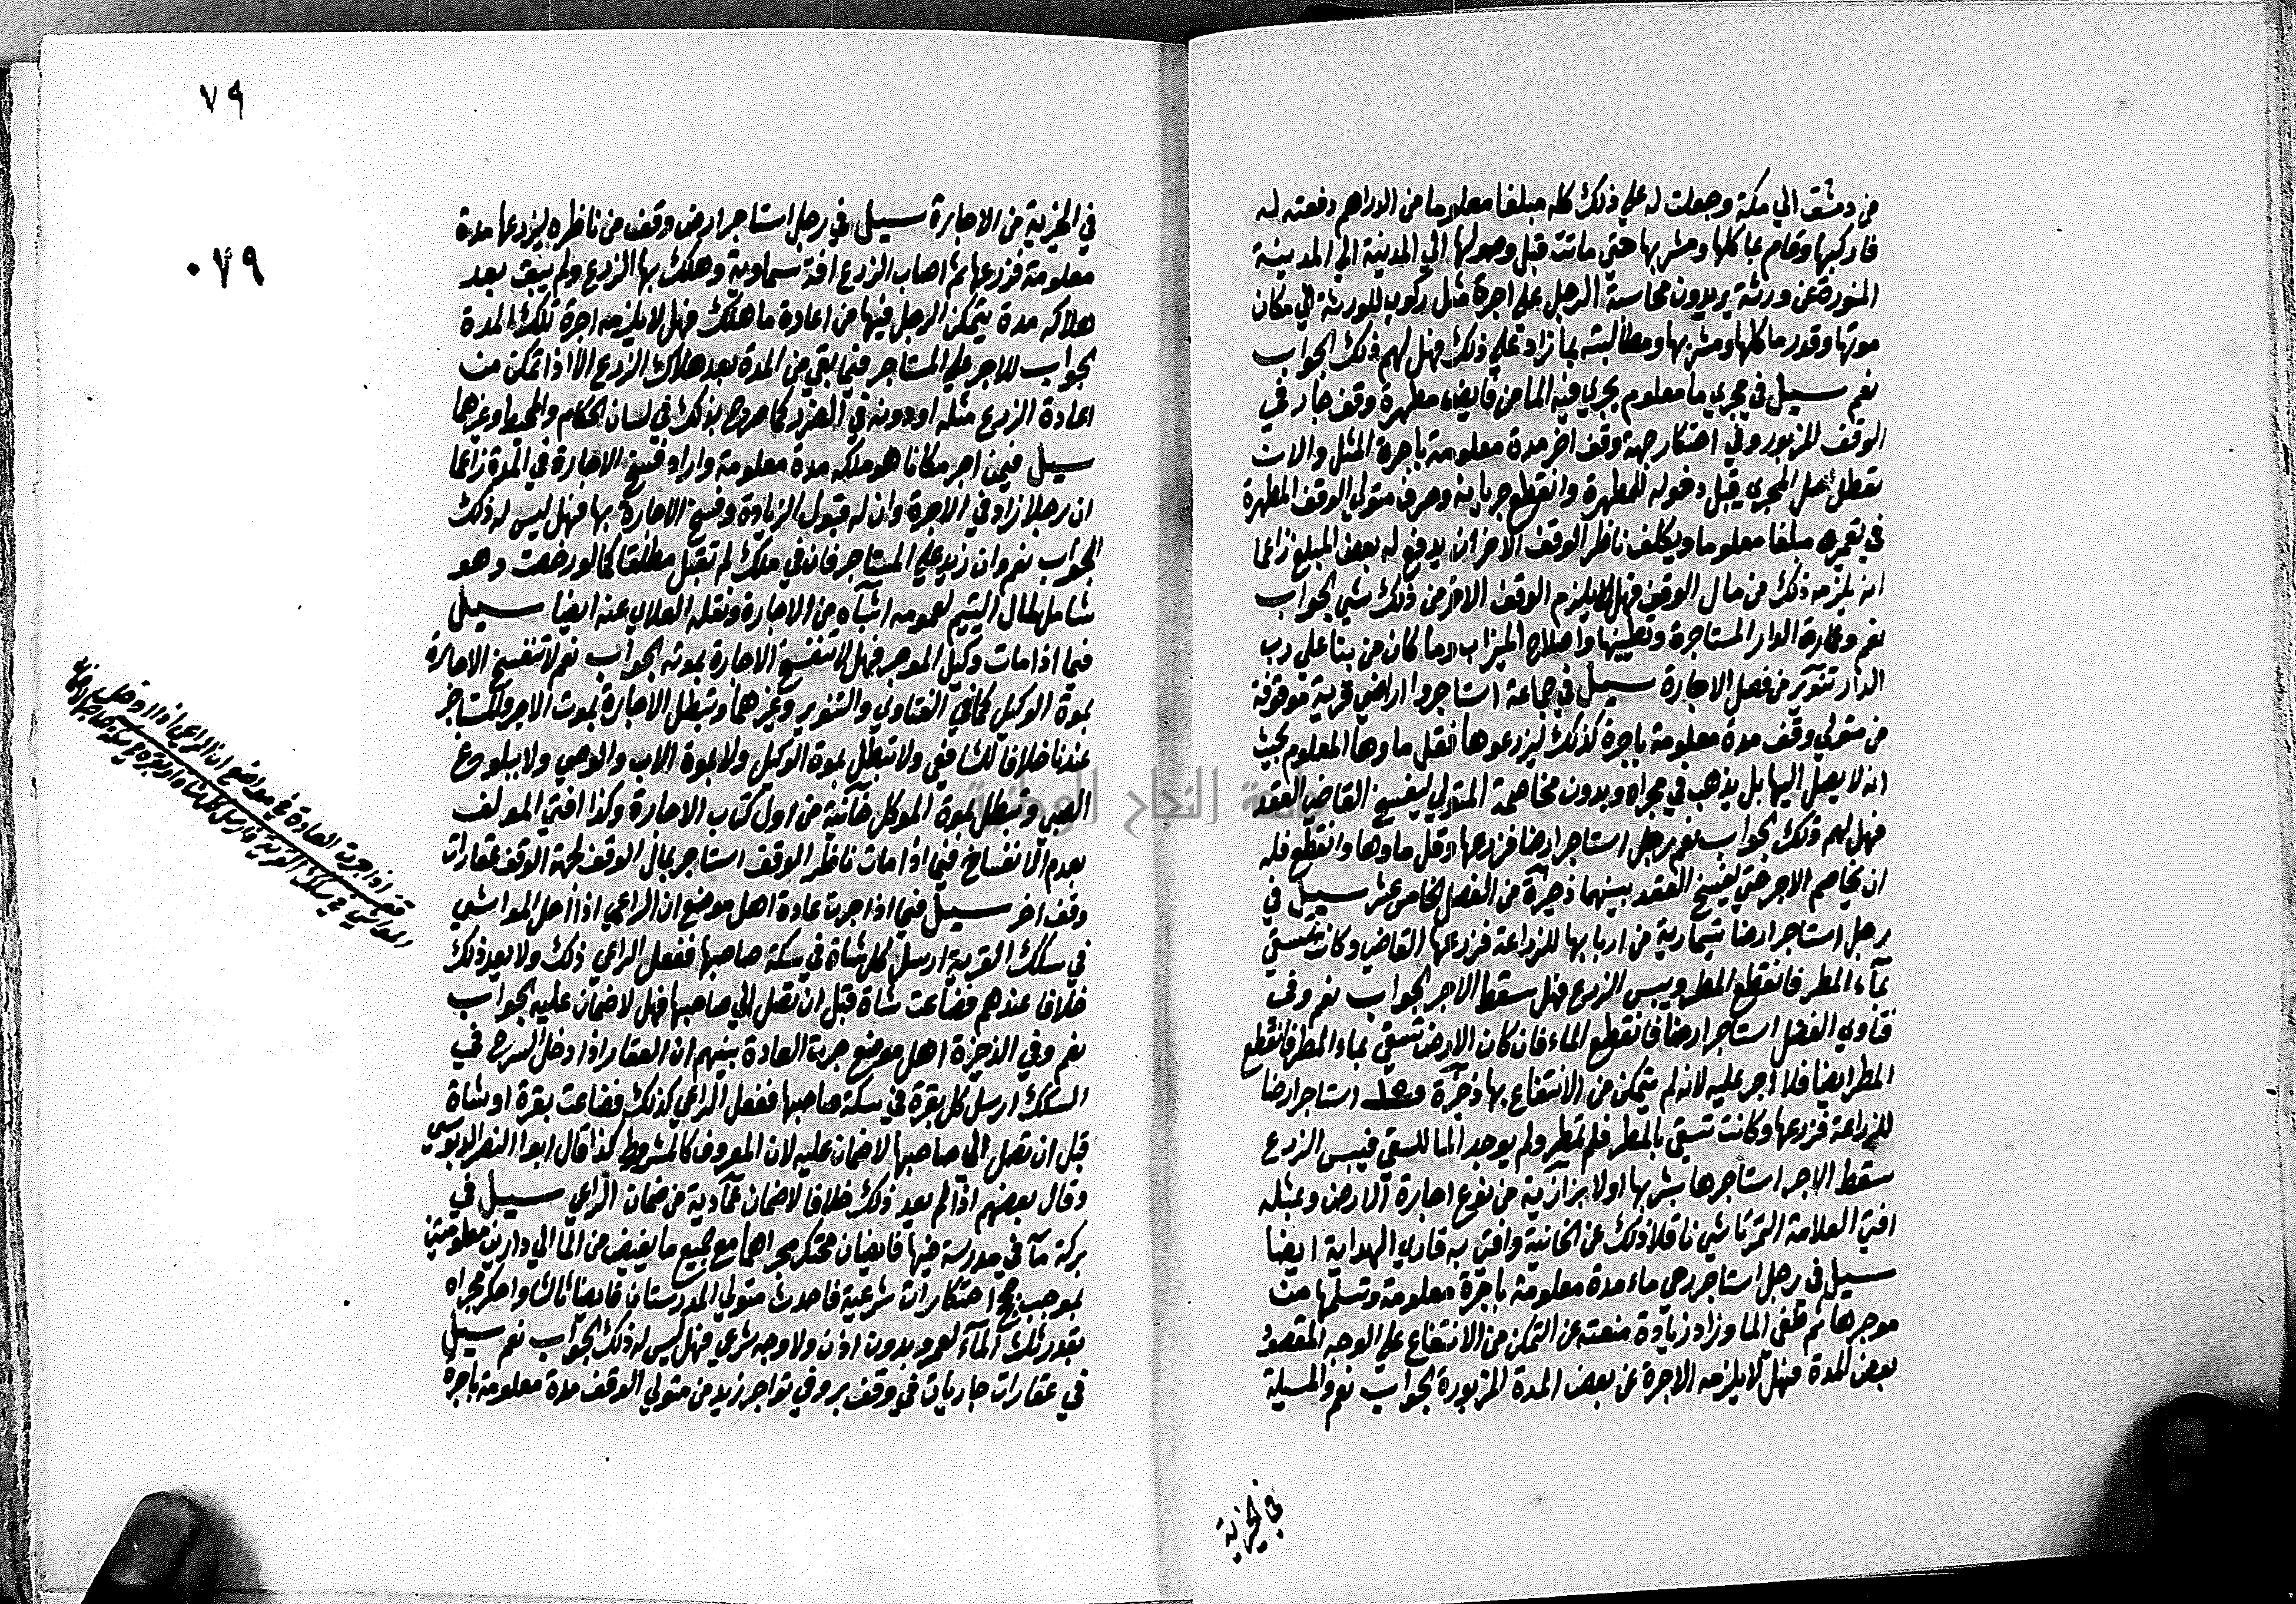 من دمشق الي مكة وجعلت له علي ذلك كله مبلغا معلوما من الدراهم دفعته له
فاركبها وقام بماكلها ومشربها حتي ماتت قبل وصولها الي المدينة الي المدينة
المنورة عن ورثة يريدون محاسبة الرجل علي اجرة مثل ركوب للورثة الي مكان
موتها وقدر ماكلها ومشربها ومطالبته بما زاد علي ذلك فهل لهم ذلك الجواب
نعم سيل في مجري ما معلوم يجري فيه الما من فايض مطهرة وقف جار في
الوقف المزبور وفي احتكار جهة وقف اخر مدة معلومة باجرة المثل والان
تعطل المجري قبل دخوله للمطهرة وانقطع جريانه وصرف متولي الوقف المطهرة
في تعميره مبلغا معلوما ويكلف ناظر الوقف الاخر ان يدفع له بعض المبلغ زاعما
انه يلزمه ذلك من مال الوقف فهل لا يلزم الوقف الاخر من ذلك شي الجواب
نعم وعمارة الدار المستاجرة وتطيينها واصلاح الميزاب وما كان من بنا علي رب
الدار تنوير من فصل الاجارة سيل في جماعة استاجروا اراضي قرية موقوفة
من متولي وقف مدة معلومة باجرة كذلك ليزرعوها فقل ماوها المعلوم بحيث
انه لا يصل اليها بل يذهب في مجراه ويدون مخاصمة المتولي ليفسخ القاضي العقد
فهل لهم ذلك الجواب نعم رجل استاجر ارضا فزرعها وقل ماوها وانقطع فله
ان يخاصم الاجر حتي يفسخ العقد بينهما ذخيرة من الفصل الخامس عشر سيل في
رجل استاجر ارضا تيمارية من اربابها للزراعة فزرعها القاضي وكانت تسقي
بمآء المطر فانقطع المطر ويبس الزرع فهل سقط الاجر الجواب نعم وفي
فتاوي الفضل استاجر ارضا فانقطع الماء فان كان الارض تسقي بماء المطر فانقطع
المطر ايضا فلا اجر عليه لانه لم يتمكن من الانتفاع بها ذخيرة استاجر ارضا
للزراعة فزرعها وكانت تسقي بالمطر فلم تمطر ولم يوجد الما للسقي فيبس الزرع
سقط الاجر استاجرها بشربها اولا بزازية من نوع اجارة الارض وبمثله
افتي العلامة التمرتاشي ناقلا ذلك عن الخانية وافتي به قاري الهداية ايضا
سيل في رجل استاجر رحي ماء مدة معلومة باجرة معلومة وتسلمها من
موجرها ثم طغي الما وزاد زيادة منعته عن التمكن من الانتفاع علي الوجه المقصود
بعض المدة فهل لا يلزمه الاجرة عن بعض المدة المزبورة الجواب نعم والمسيلة
في الخيرية
٧٩
٠٧٩
في الخيرية من الاجارة سيل في رجل استاجر ارض وقف من ناظره ليزرعها مدة
معلومة فزرعها ثم اصاب الزرع افة سماوية وهلك بها الزرع ولم يبق بعد
هلاكه مدة يتمكن الرجل فيها من اعادة ما هلك فهل لا يلزمه اجرة تلك المدة
الجواب لا اجر علي المستاجر فيما بقي من المدة بعد هلاك الزرع الا اذا تمكن من
اعادة الزرع مثله او دونه في الضرر كما صرح بذلك في لسان الحكام والمحيط وغيرها
سيل فيمن اجر مكانا هو ملكه مدة معلومة واراد فسخ الاجارة في المدة زاعما
ان رجلا زاد في الاجرة وان له قبول الزيادة وفسخ الاجارة بها فهل ليس له ذلك
الجواب نعم وان زيد علي المستاجر فان في ملك لم تقبل مطلقا كما لو رخصت وهو
شامل لمال اليتيم لعمومه اشباه من الاجارة ونقله العلاي عنه ايضا سيل
فيما اذا مات وكيل الموجر فهل لا تنفسخ الاجارة بموته الجواب نعم لا تنفسخ الاجارة
بموت الوكيل كما في الفتاوي والتنوير وغيرهما وتبطل الاجارة بموت الاجر والمستاجر
عندنا خلافا للشافعي ولا تبطل بموة الوكيل ولا بموة الاب والوصي ولا ببلوغ
الصبي وتبطل بموة الموكل خانية من اول كتاب الاجارة وكذا افتي المولف
بعدم الانفساخ فيما اذا مات ناظر الوقف استاجر بمال الوقف لجهة الوقف عقارات
وقف اخر سيل فيما اذا جرت عادة اهل موضع ان الراعي اذا ادخل المواشي
في سكك القرية ارسل كل شاة في سكة صاحبها ففعل الراعي ذلك ولا يعد ذلك
خلافا عندهم فضاعت شاة قبل ان تصل الي صاحبها فهل لا ضمان عليه الجواب
نعم وفي الذخيرة اهل موضع جرت العادة بينهم ان العقار اذا دخل السرح في
السكك ارسل كل بقرة في سكة صاحبها ففعل الراعي كذلك فضاعت بقرة او شاة
قبل ان تصل الي صاحبها لا ضمان عليه لان المعروف كالمشروط كذا قال ابوا النصر الدبوسي
وقال بعضهم اذا لم يعد ذلك خلافا لا ضمان عمادية من ضمان الراعي سيل في
بركة مآ في مدرسة فيها فايضان محتكر مجراهما مع جميع ما يفيض من الما الي دارين معلومتين
بموجب حجج احتكارات شرعية فاحدث متولي المدرستان فايضا ثالثا واحكر مجراه
بقدر ثلث المآء لعمرو بدون اذن ولا وجه شرعي فهل ليس له ذلك الجواب نعم سيل
في عقارات جاريات في وقف بر وفي تواجر زيد من متولي الوقف مدة معلومة باجرة
اذا جرت العادة في مواضع ان الراعي اذا ادخل
المواشي في سكك القرية ارسل كل شاة او بقرة في سكة صاحبها